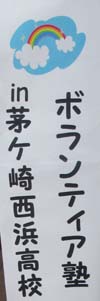 ボランティア塾
in茅ケ崎西浜高校